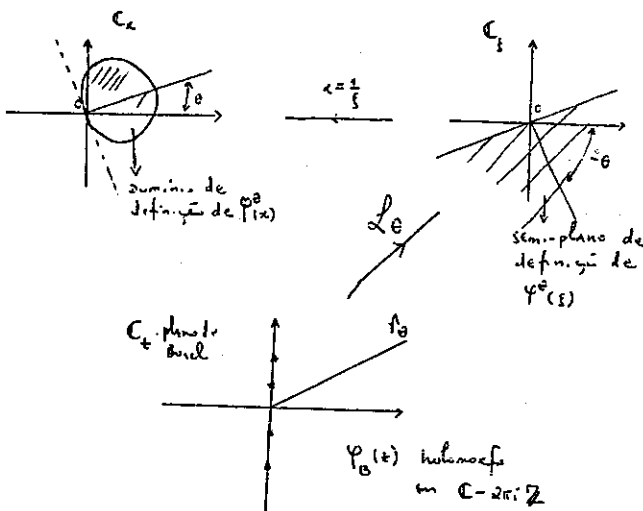 ℂ_x
θ
domínio de
definição de φ^θ(x)
x = 1/ξ
ℂ_ξ
-θ
semi-plano de
definição de
φ^θ(ξ)
ℒ_θ
ℂ_t plano de
Borel
φ_B(t) holomorfa
em ℂ-2πiℤ